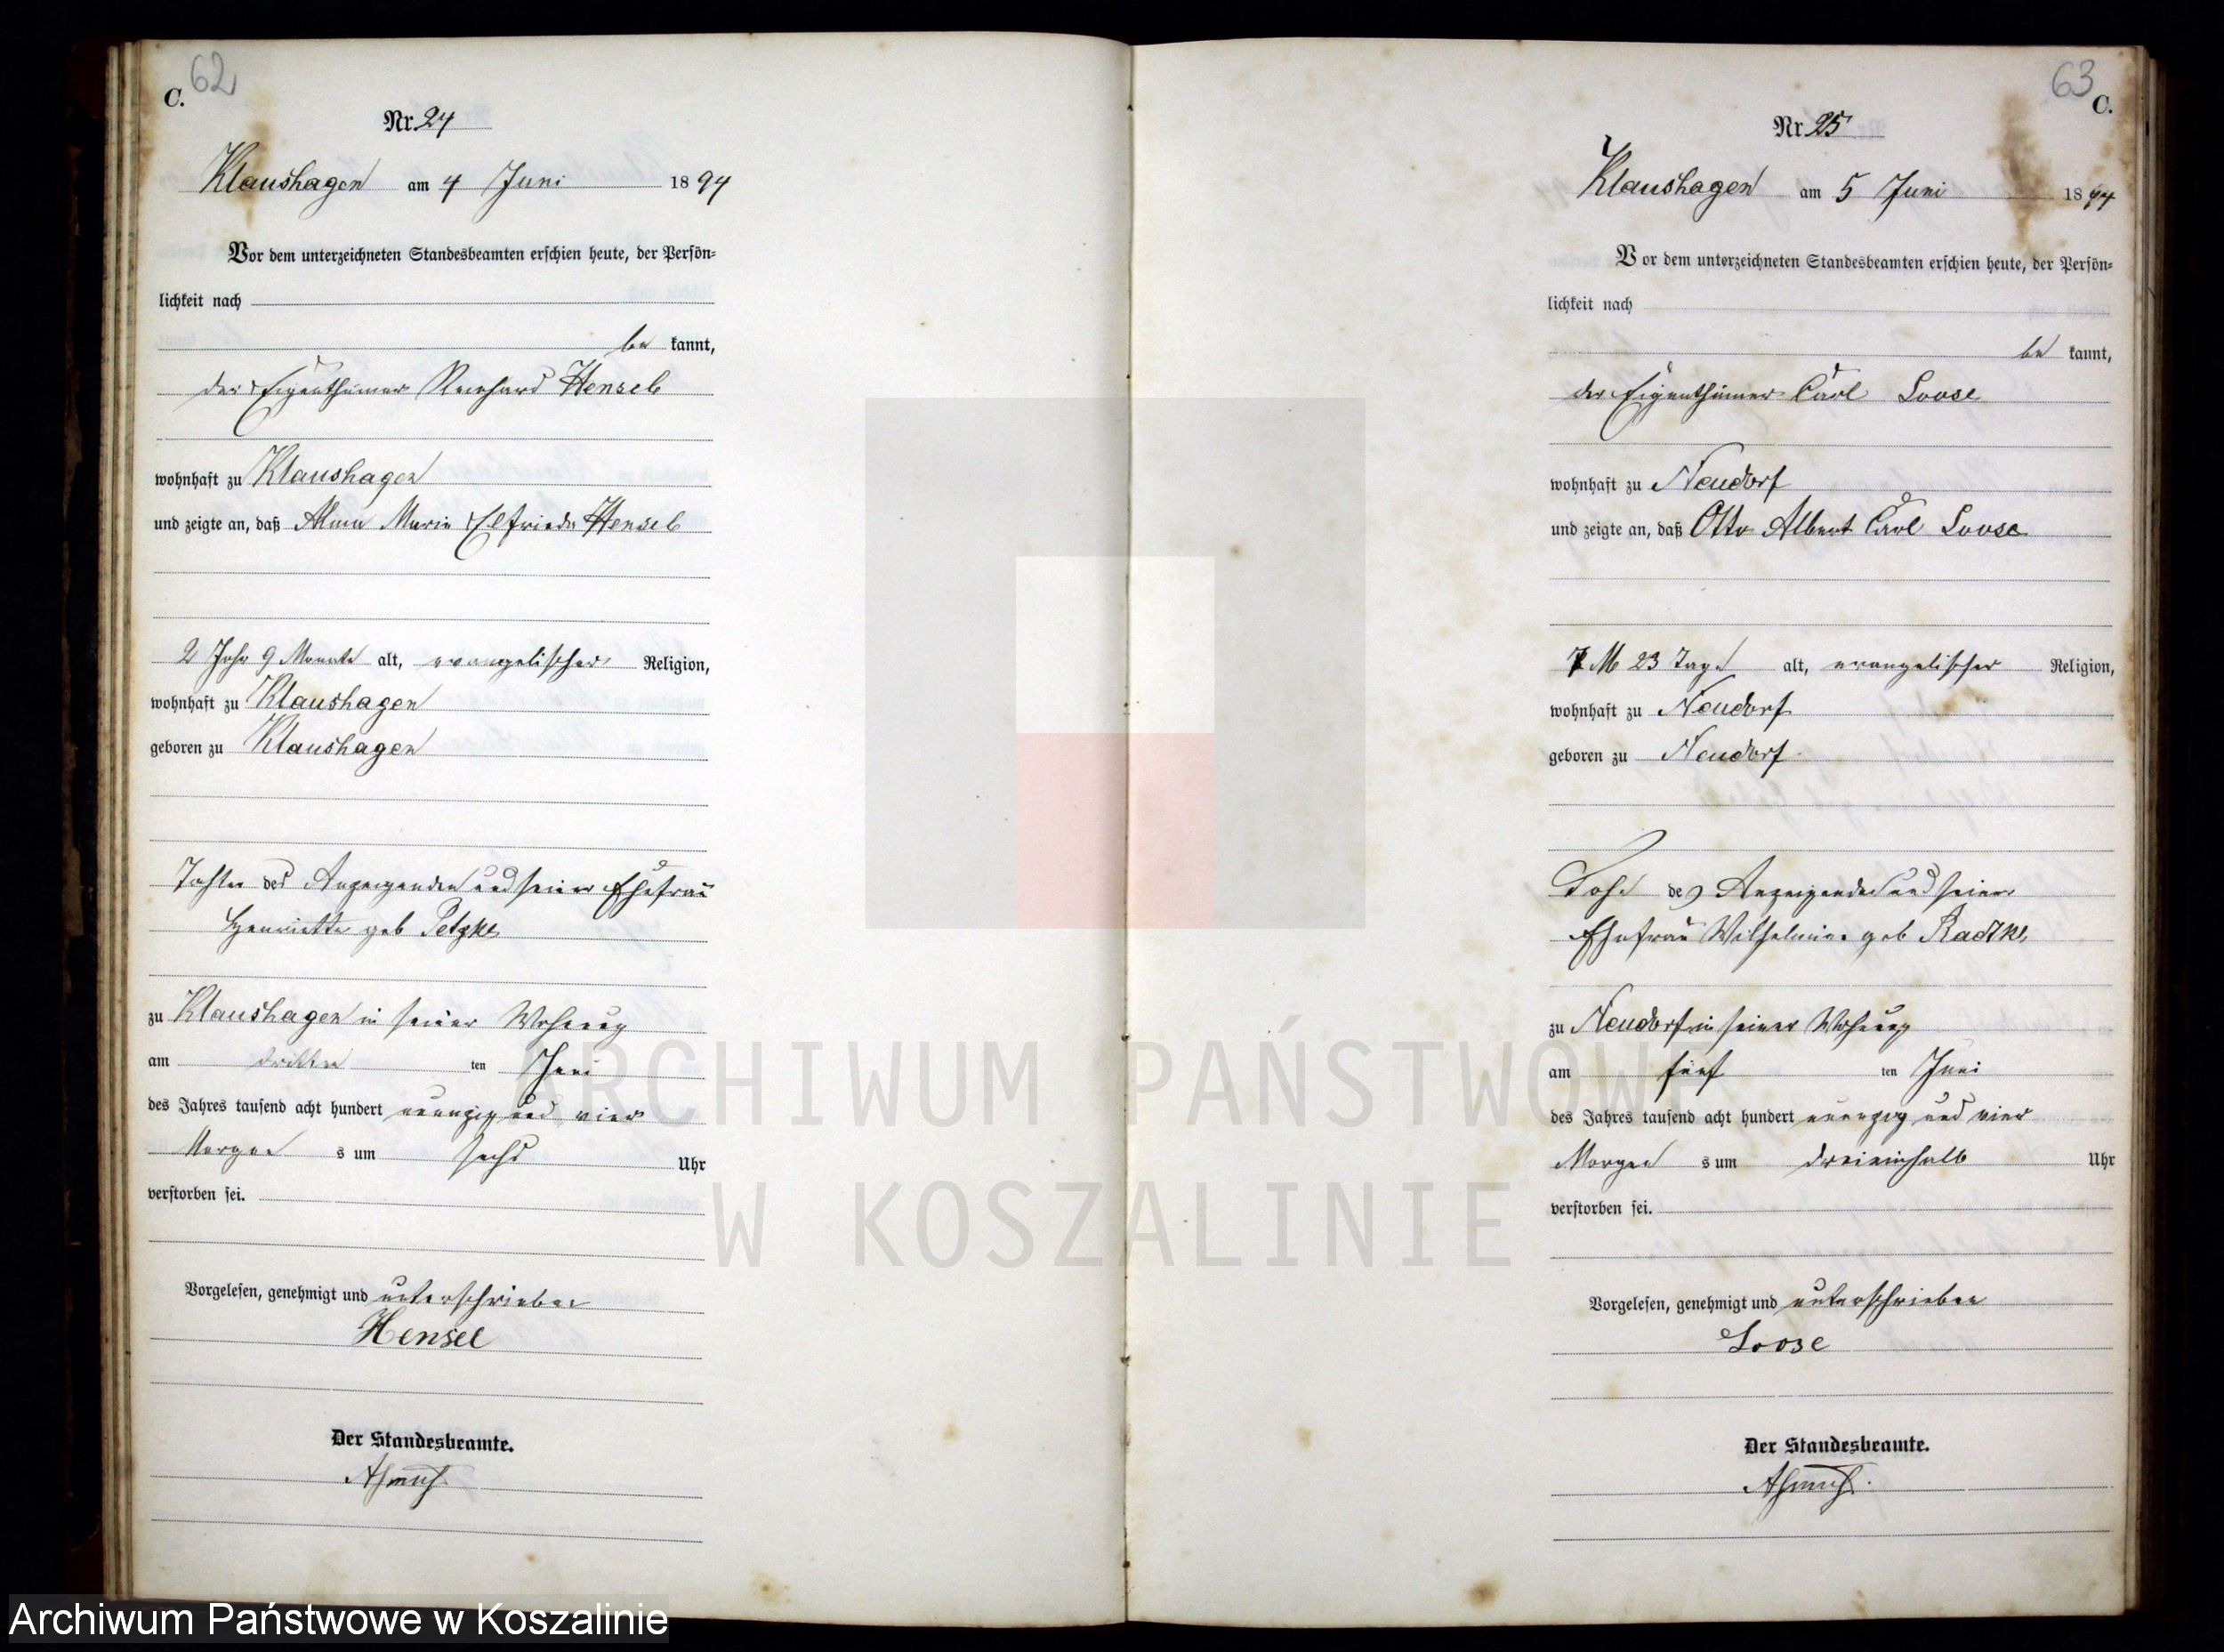 62
C.
Nr. 24
Klaushagen am 4 Juni 1894
Vor dem unterzeichneten Standesbeamten erschien heute, der Persön=
lichkeit nach
be kannt,
der Eigenthümer Reinhard Hensel
wohnhaft zu Klaushagen
und zeigte an, daß Alma Marie Elfriede Hensel
2 Jahr 9 Monate alt, evangelischer Religion,
wohnhaft zu Klaushagen
geboren zu Klaushagen
Tochter des Anzeigenden und seiner Ehefrau
Henriette geb Petzke
zu Klaushagen in seiner Wohnung
am dritten ten Juni
des Jahres tausend acht hundert neunzig und vier
Morgen s um sechs Uhr
verstorben sei.
Vorgelesen, genehmigt und unterschrieben
Hensel
Der Standesbeamte.
63
C.
Nr. 25
Klaushagen am 5 Juni 1894
Vor dem unterzeichneten Standesbeamten erschien heute, der Persön=
lichkeit nach
be kannt,
der Eigenthümer Carl Loose
wohnhaft zu Neudorf
und zeigte an, daß Otto Albert Carl Loose
7 M 23 Tage alt, evangelischer Religion,
wohnhaft zu Neudorf
geboren zu Neudorf
Sohn des Anzeigenden und seiner
Ehefrau Wilhelmine geb Radtke
zu Neudorf in seiner Wohnung
am fünf ten Juni
des Jahres tausend acht hundert neunzig und vier
Morgen s um dreieinhalb Uhr
verstorben sei.
Vorgelesen, genehmigt und unterschrieben
Loose
Der Standesbeamte.
ARCHIWUM PAŃSTWOWE
W KOSZALINIE
Archiwum Państwowe w Koszalinie